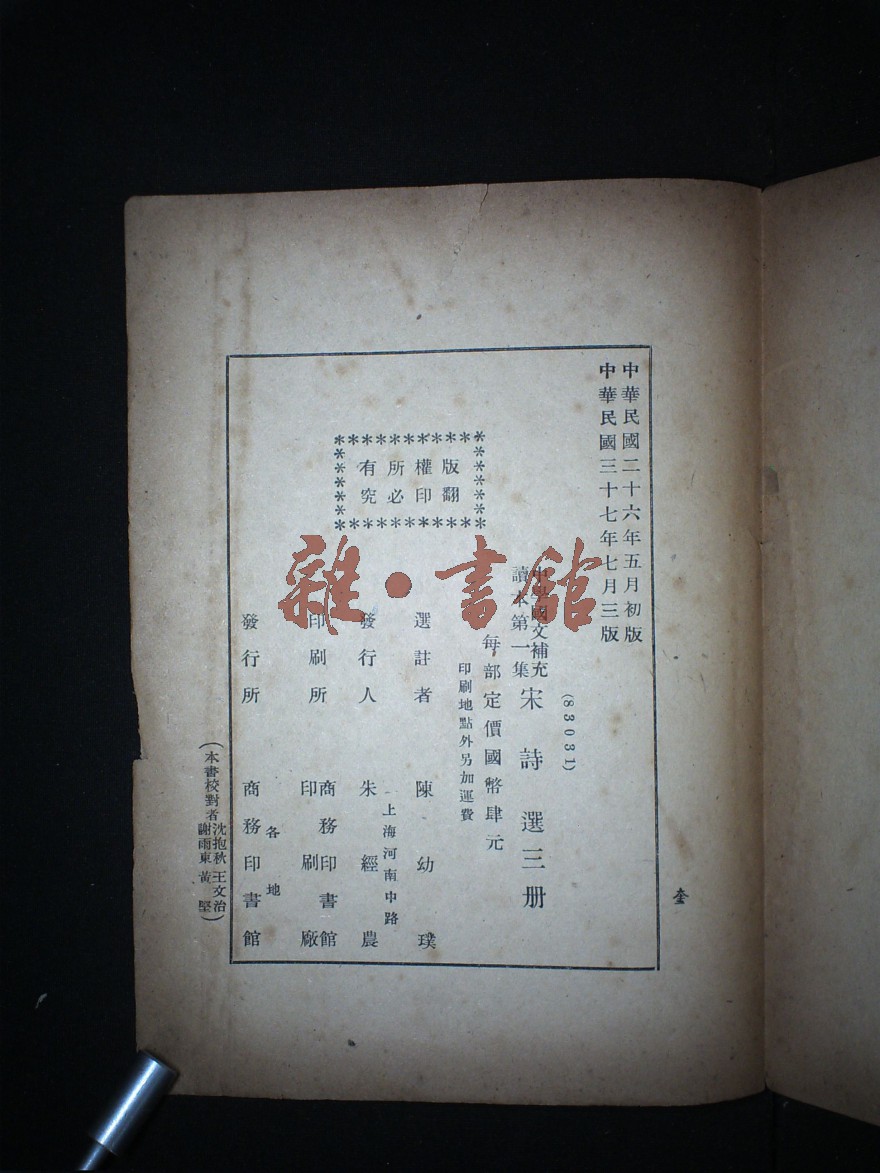 中華民國二十六年五月初版
中華民國三十七年七月三版
(83031)
中學國文補充
讀本第一集
宋詩選三册
每部定價國幣肆元
印刷地點外另加運費
版權所有
翻印必究
選註者 陳幼璞
上海河南中路
發行人 朱經農
印刷所 商務印書館
印刷廠
各地
發行所 商務印書館
(本書校對者 沈抱秋 王文治
謝雨東 黃堅)
雜·書館